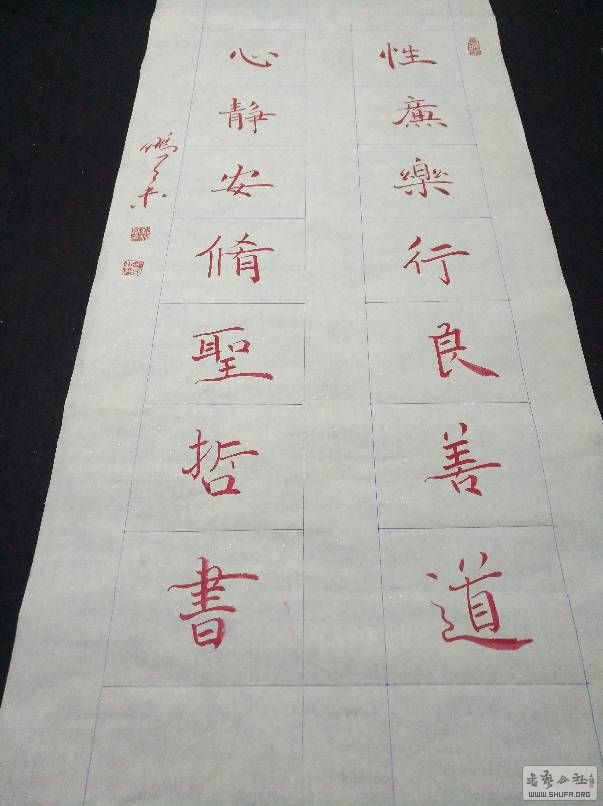 性廉樂行良善道
心靜安脩聖哲書
書藝公社
WWW.SHUFA.ORG